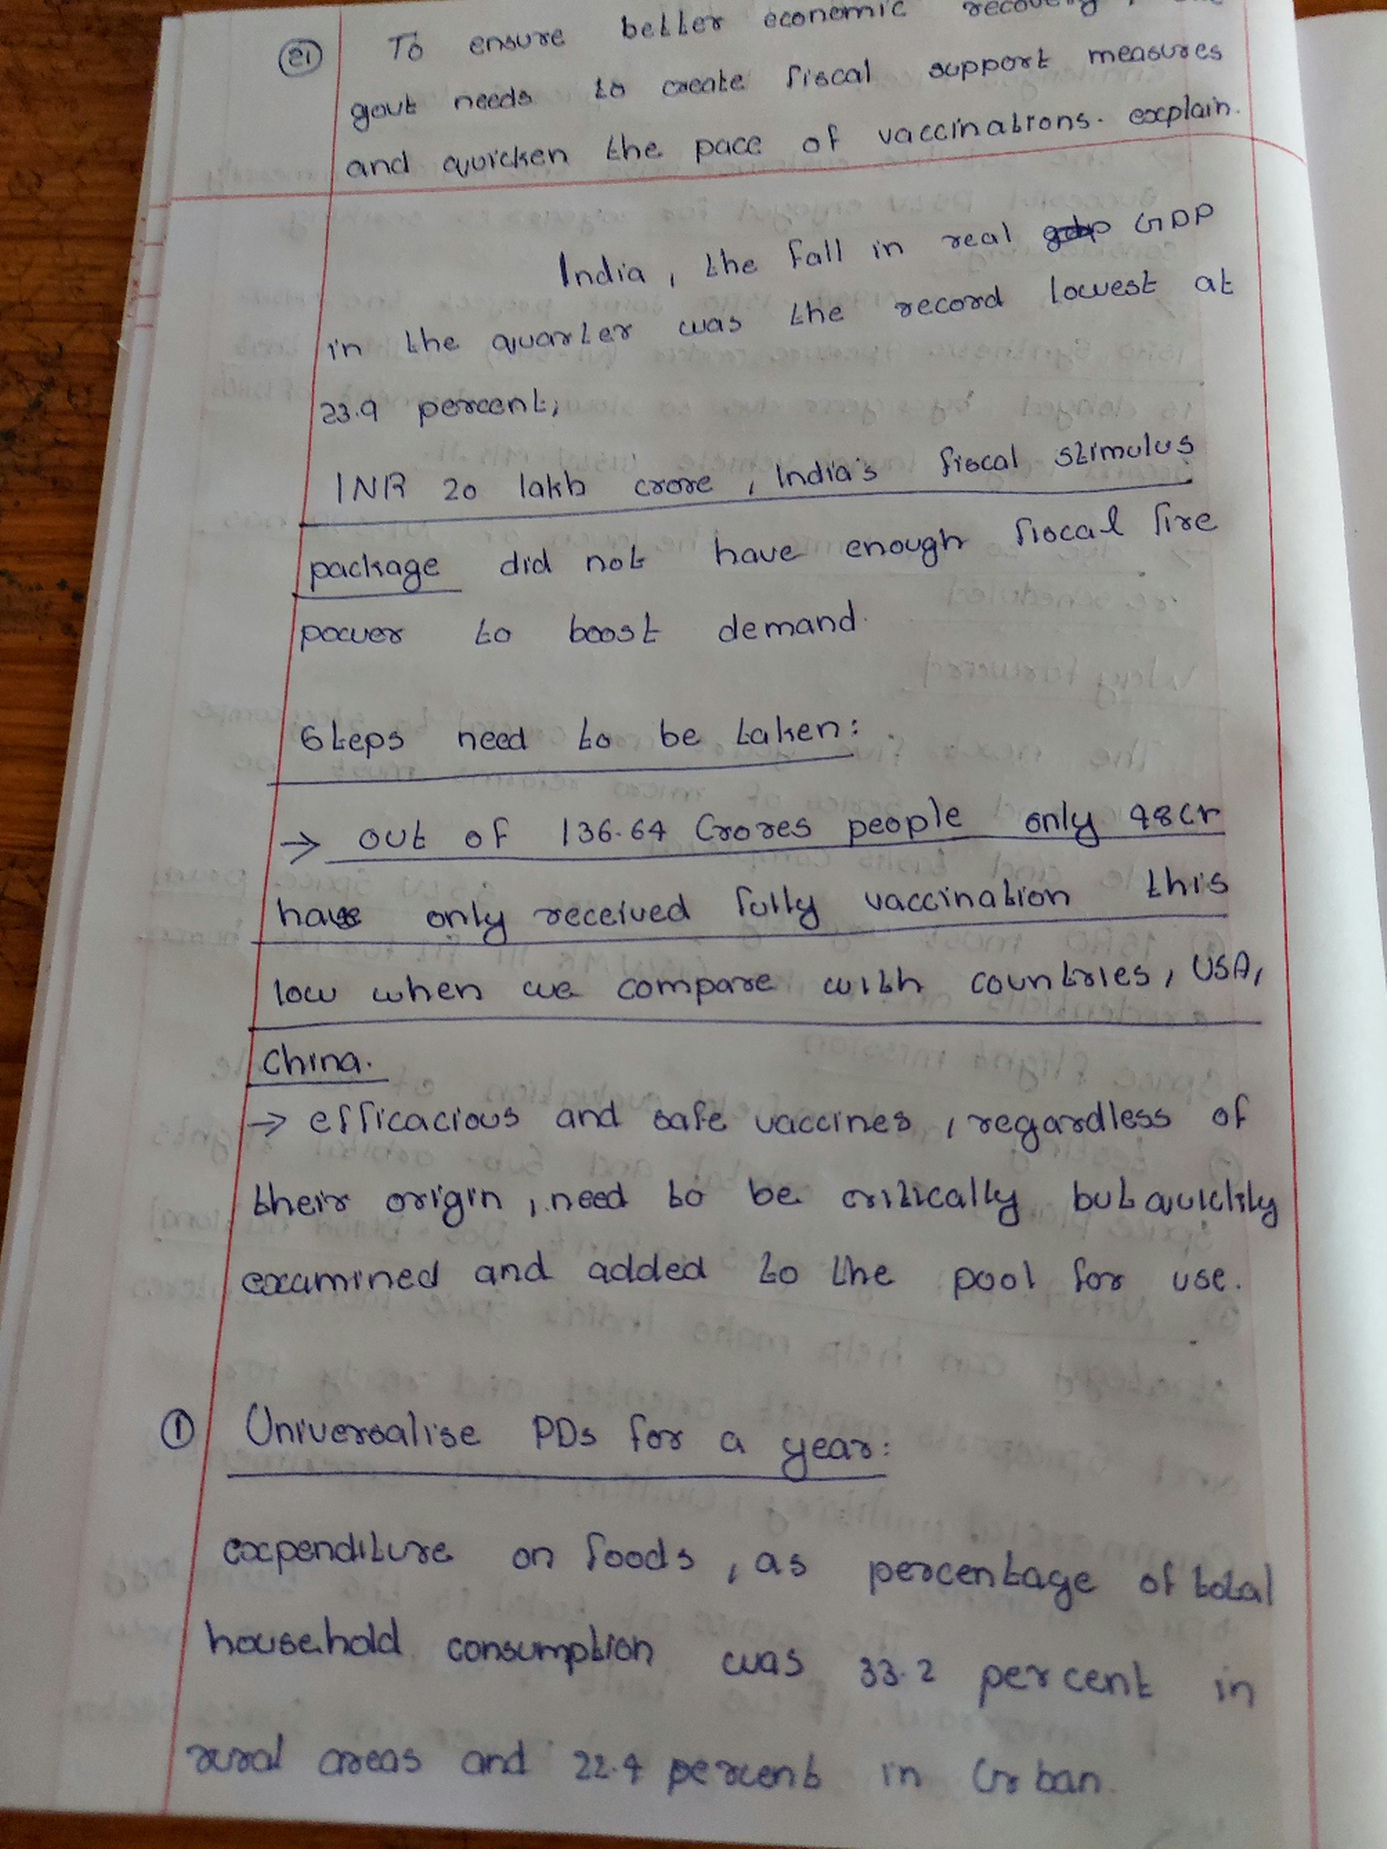 21 To ensure better economic recovery, the
govt needs to create fiscal support measures
and quicken the pace of vaccinations. explain.
India, the fall in real GDP
in the quarter was the record lowest at
23.9 percent;
INR 20 lakh crore, India's fiscal stimulus
package did not have enough fiscal fire
power to boost demand.
Steps need to be taken:
→ out of 136.64 Crores people only 48cr
have only received fully vaccination this
low when we compare with countries, USA,
China.
→ efficacious and safe vaccines, regardless of
their origin, need to be critically but quickly
examined and added to the pool for use.
① Universalise PDS for a year:
expenditure on foods, as percentage of total
household consumption was 33.2 percent in
rural areas and 22.4 percent in Urban.